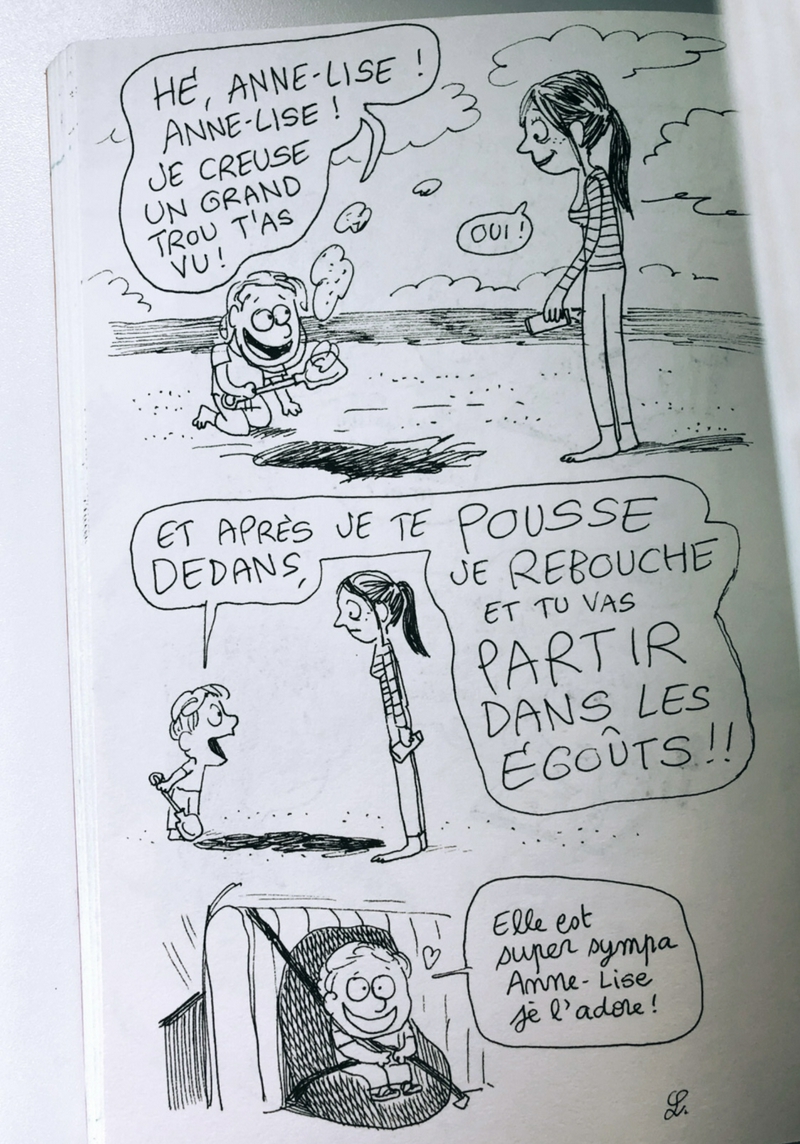 HÉ, ANNE-LISE !
ANNE-LISE !
JE CREUSE
UN GRAND
TROU T'AS
VU !
OUI !
ET APRÈS JE TE POUSSE
DEDANS,
JE REBOUCHE
ET TU VAS
PARTIR
DANS LES
ÉGOÛTS !!
Elle est
super sympa
Anne-Lise
jè l'adore !
L.